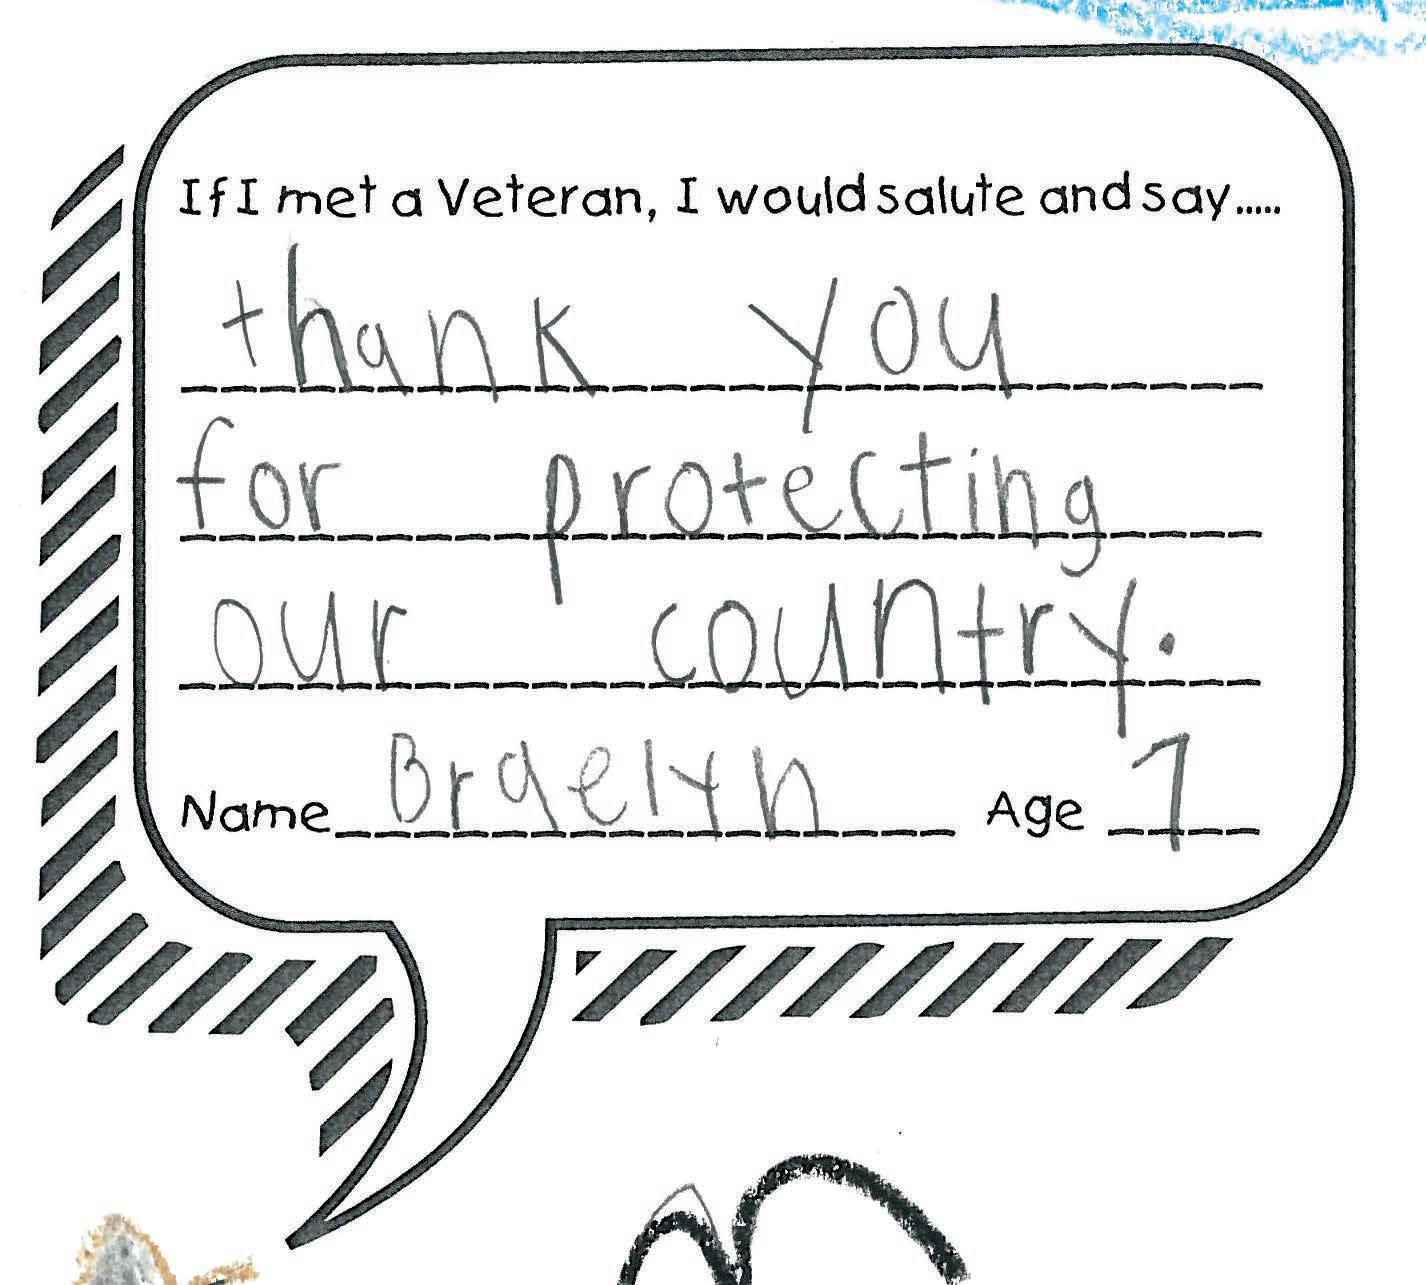 If I met a Veteran, I would salute and say.....
thank you
for protecting
our country.
Name Braelyn Age 7